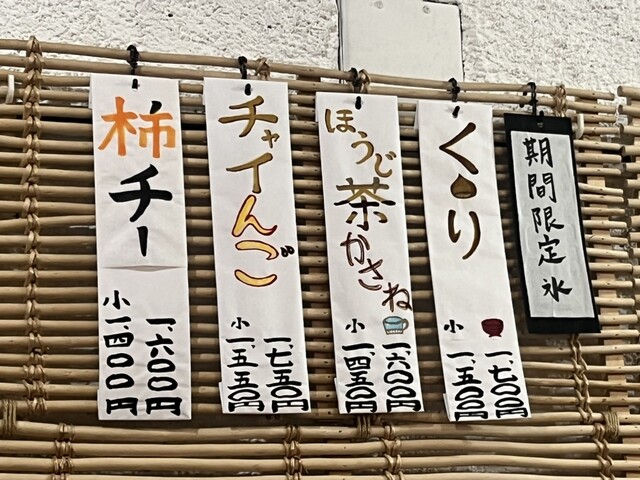 期間限定氷
くり
一、七〇〇円
小一、五〇〇円
ほうじ茶かさね
一、六〇〇円
小一、四五〇円
チャイんご
一、七五〇円
小一、五五〇円
柿チー
一、六〇〇円
小一、四〇〇円